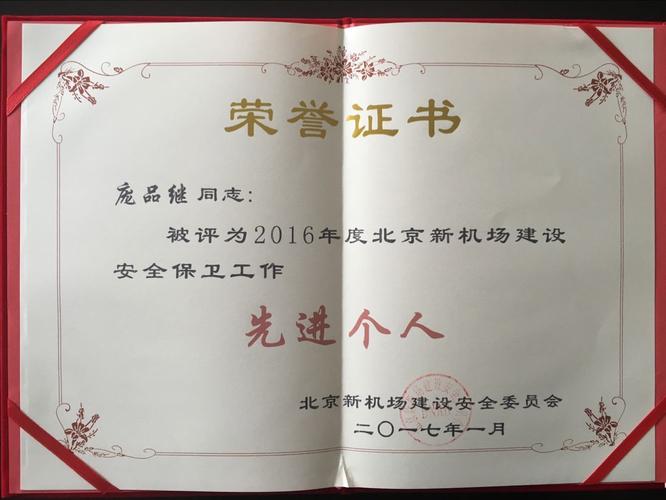 荣誉证书
庞品继同志:
被评为2016年度北京新机场建设
安全保卫工作
先进个人
北京新机场建设安全委员会
二〇一七年一月